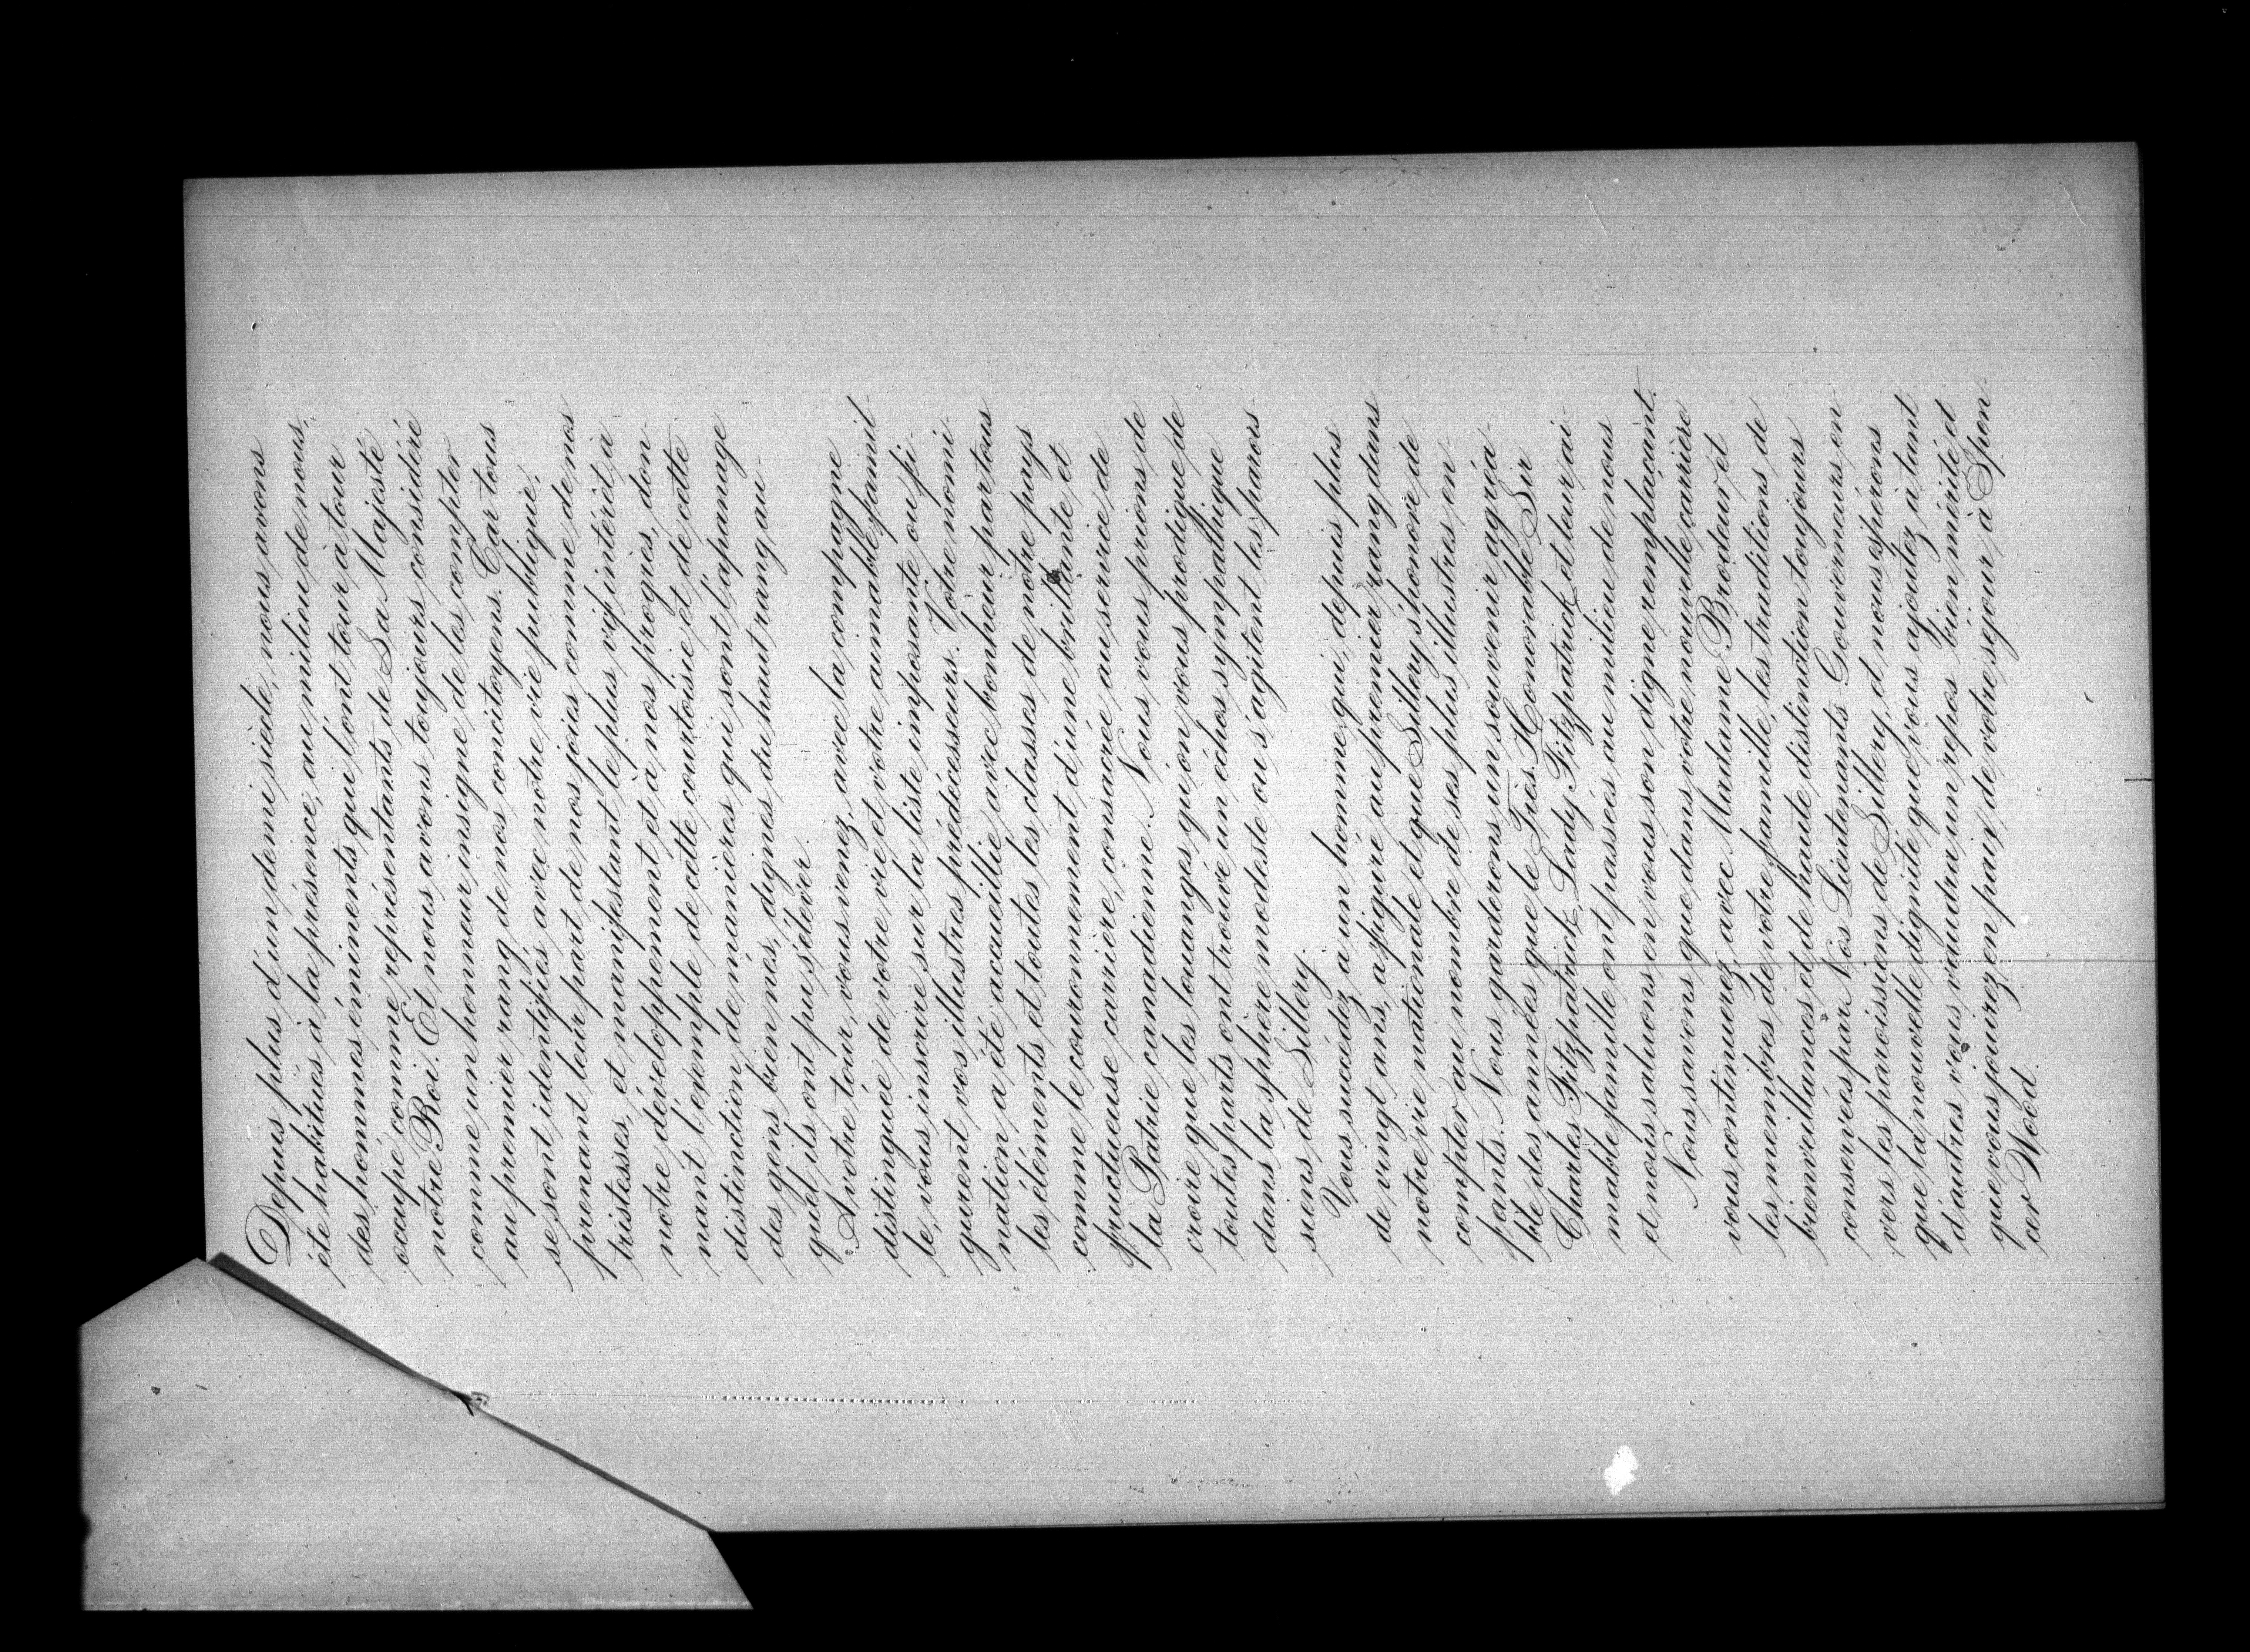 Depuis plus d'un demi siècle, nous avons
été habitués à la présence, au milieu de nous,
des hommes éminents qui l'ont tour à tour
occupé comme représentants de Sa Majesté
notre Roi. Et nous avons toujours considéré
comme un honneur insigne de les compter
au premier rang de nos concitoyens. Car tous
se sont identifiés avec notre vie publique,
prenant leur part de nos joies comme de nos
tristesses, et manifestant le plus vif intérêt à
notre développement et à nos progrès, don-
nant l'exemple de cette courtoisie et de cette
distinction de manières qui sont l'apanage
des gens bien nés, dignes du haut rang au-
quel ils ont pu s'élever.
A votre tour, vous venez, avec la compagne
distinguée de votre vie et votre aimable famil-
le, vous inscrire sur la liste imposante ou fi-
gurent vos illustres prédécesseurs. Votre nomi-
nation a été accueillie avec bonheur par tous
les éléments et toutes les classes de notre pays
comme le couronnement d'une brillante et
fructueuse carrière, consacrée au service de
la Patrie canadienne. Nous vous prions de
croire que les louanges qu'on vous prodigue de
toutes parts ont trouvé un échos sympathique
dans la sphère modeste ou s'agitent les parois-
siens de Sillery.
Vous succédez à un homme qui, depuis plus
de vingt ans, a figuré au premier rang dans
notre vie nationale et que Sillery s'honore de
compter au nombre de ses plus illustres en-
fants. Nous garderons un souvenir agréa-
ble des années que le Très Honorable Sir
Charles Fitzpatrick, Lady Fitzpatrick et leur ai-
mable famille ont passées au milieu de nous
et nous saluons en vous son digne remplaçant.
Nous savons que dans votre nouvelle carrière
vous continuerez, avec Madame Brodeur et
les membres de votre famille, les traditions de
bienveillances et de haute distinction toujours
conservées par Nos Lieutenants-Gouverneurs, en-
vers les paroissiens de Sillery, et nous espérons
que la nouvelle dignité que vous ajoutez à tant
d'autres, vous vaudra un repos bien mérité et
que vous jouirez en paix de votre séjour à Spen-
cer Wood.